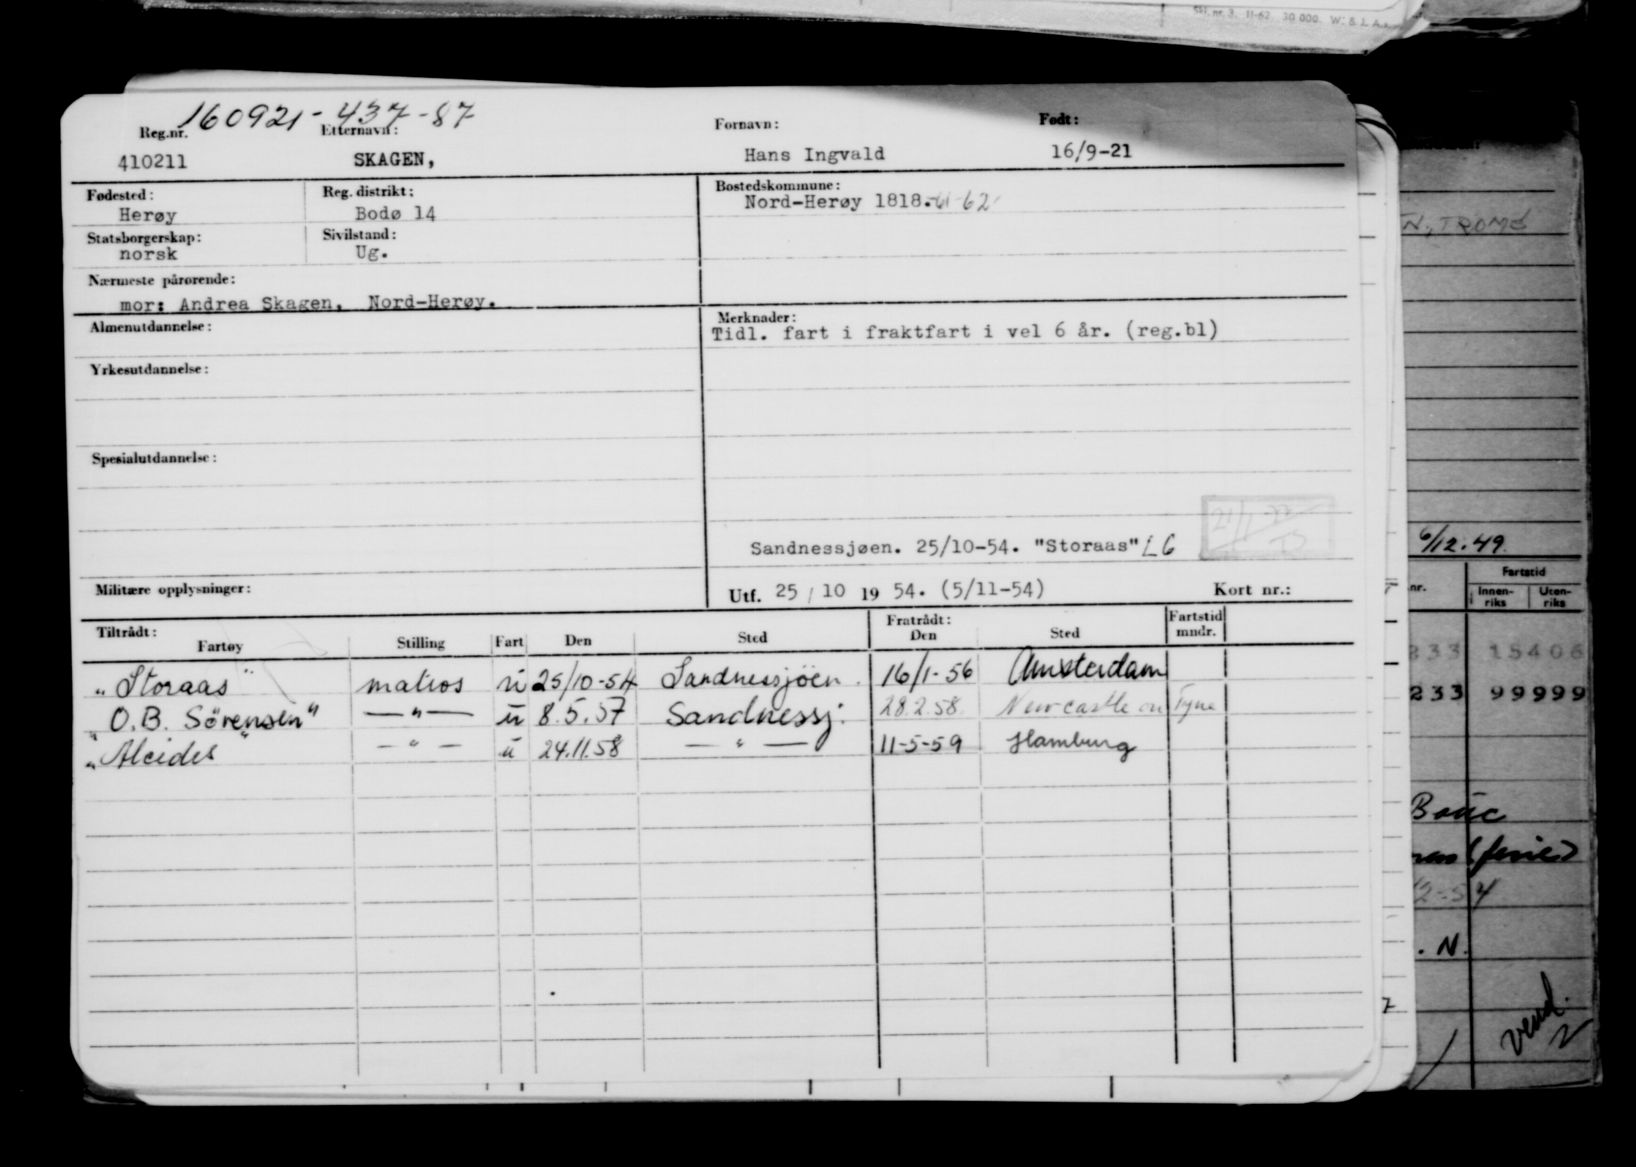 Skj. nr. 3. 11-62 30 000. W. & J. A.s.
160921-437-87
Reg.nr. Etternavn: Fornavn: Født:
410211 SKAGEN, Hans Ingvald 16/9-21
Fødested: Reg. distrikt: Bostedskommune:
Herøy Bodø 14 Nord-Herøy 1818.-61-62
Statsborgerskap: Sivilstand:
norsk Ug.
Nærmeste pårørende:
mor: Andrea Skagen, Nord-Herøy.
Almenutdannelse: Merknader:
Tidl. fart i fraktfart i vel 6 år. (reg.bl)
Yrkesutdannelse:
Spesialutdannelse:
Sandnessjøen. 25/10-54. "Storaas" LG
Militære opplysninger: Utf. 25/10 19 54. (5/11-54) Kort nr.:
Tiltrådt: Fratrådt: Fartstid
Fartøy Stilling Fart Den Sted Den Sted mndr.
"Storaas" matros u 25/10-54 Sandnessjöen. 16/1-56 Amsterdam
"O.B. Sörensen" —"— u 8.5.57 Sandnessj. 28.2.58. Newcastle on Tyne
"Alcides" —"— u 24.11.58 —"— 11-5-59 Hamburg
N, TROMS
6/12.49.
nr. Fartstid
Innen-riks Uten-riks
833 15406
233 99999
(ferie)
12-54
. N.
vend.